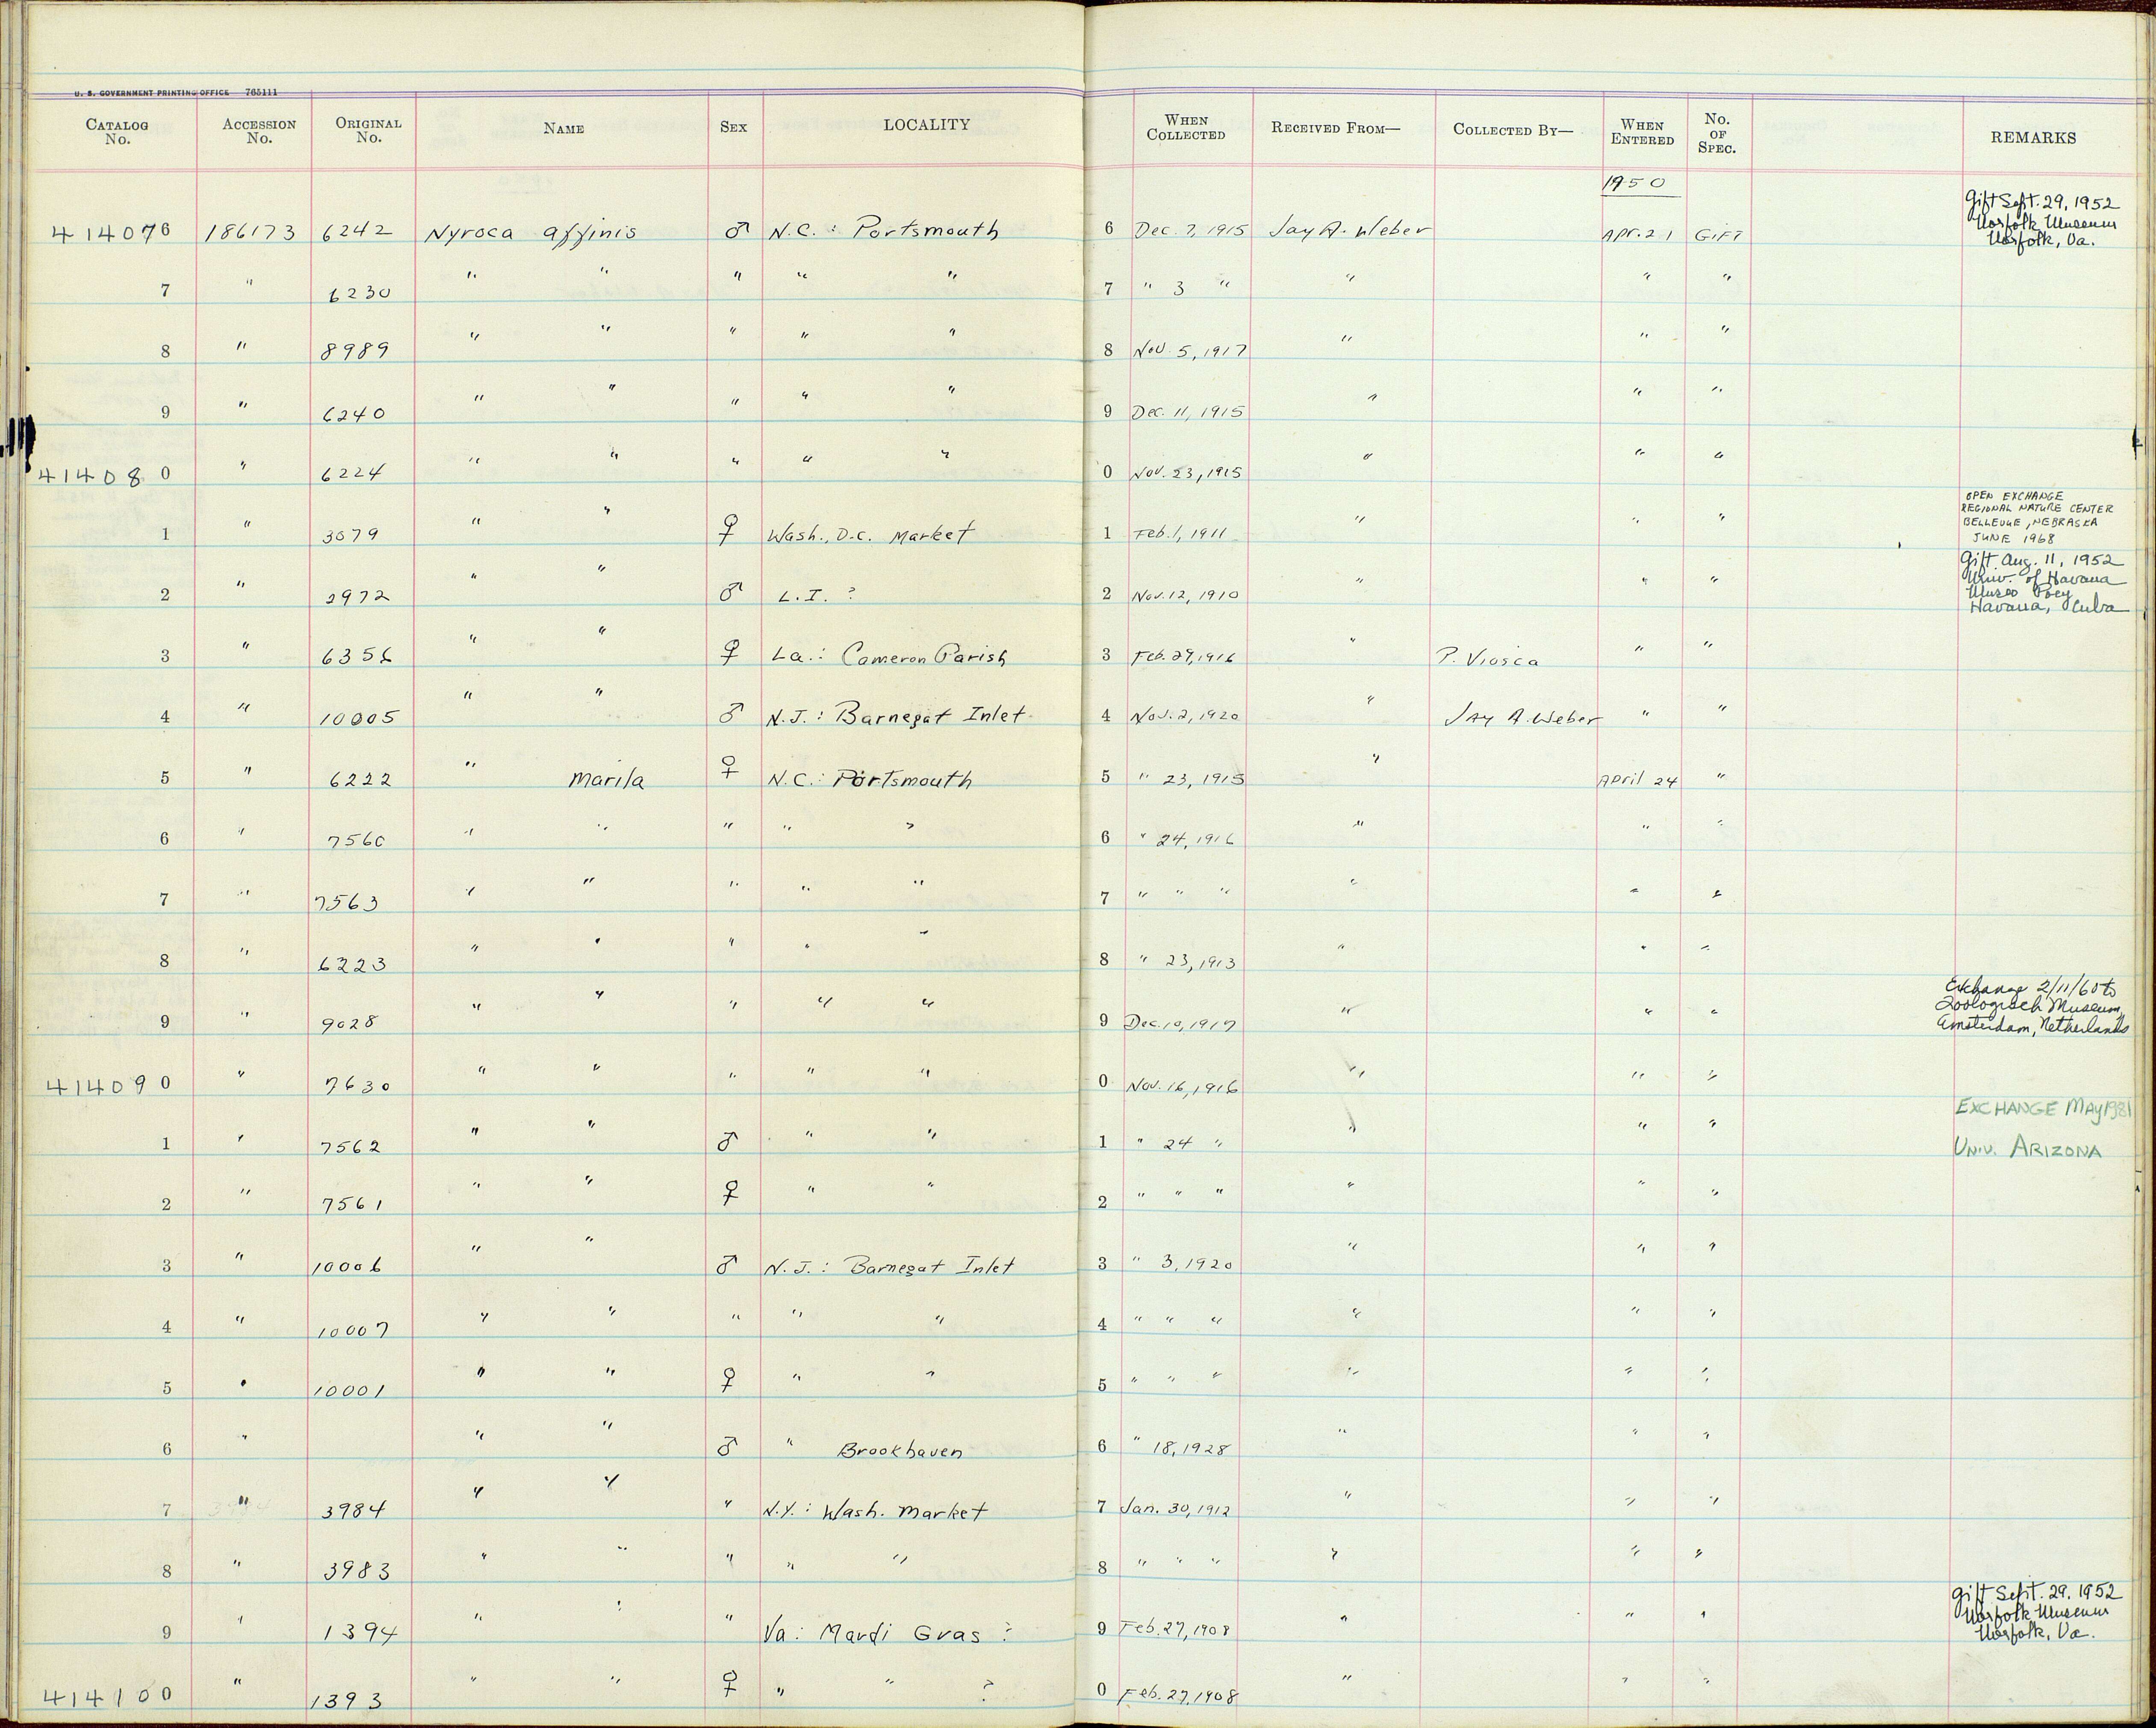 U. S. GOVERNMENT PRINTING OFFICE 765111
CATALOG No. ACCESSION No. ORIGINAL No. NAME SEX LOCALITY WHEN COLLECTED RECEIVED FROM— COLLECTED BY— WHEN ENTERED No. OF SPEC. REMARKS
1950
414076 186173 6242 Nyroca affinis ♂ N.C.: Portsmouth 6 Dec. 7, 1915 Jay A. Weber Apr. 21 GIFT Gift Sept. 29, 1952
Norfolk Museum
Norfolk, Va.
7 " 6230 " " " " " 7 " 3 " " " "
8 " 8989 " " " " " 8 Nov. 5, 1917 " " "
9 " 6240 " " " " " 9 Dec. 11, 1915 " " "
414080 " 6224 " " " " " 0 Nov. 23, 1915 " " "
1 " 3079 " " ♀ Wash., D.C. Market 1 Feb. 1, 1911 " " " OPEN EXCHANGE
REGIONAL NATURE CENTER
BELLEVUE, NEBRASKA
JUNE 1968
2 " 2972 " " ♂ L.I. ? 2 Nov. 12, 1910 " " " Gift Aug. 11, 1952
Univ. of Havana
Museo Poey
Havana, Cuba
3 " 6356 " " ♀ La.: Cameron Parish 3 Feb. 29, 1916 " P. Viosca " "
4 " 10005 " " ♂ N.J.: Barnegat Inlet 4 Nov. 2, 1920 " Jay A. Weber " "
5 " 6222 " Marila ♀ N.C.: Portsmouth 5 " 23, 1915 " April 24 "
6 " 7560 " " " " " 6 " 24, 1916 " " "
7 " 7563 " " " " " 7 " " " " " "
8 " 6223 " " " " " 8 " 23, 1913 " " "
9 " 9028 " " " " " 9 Dec. 10, 1917 " " " Exchange 2/11/60 to
Zoologisch Museum,
Amsterdam, Netherlands
414090 " 7630 " " " " " 0 Nov. 16, 1916 " " "
1 " 7562 " " ♂ " " 1 " 24 " " " " EXCHANGE MAY 1981
UNIV. ARIZONA
2 " 7561 " " ♀ " " 2 " " " " " "
3 " 10006 " " ♂ N.J.: Barnegat Inlet 3 " 3, 1920 " " "
4 " 10007 " " " " " 4 " " " " " "
5 " 10001 " " ♀ " " 5 " " " " " "
6 " " " ♂ " Brookhaven 6 " 18, 1928 " " "
7 " 3984 " " " N.Y.: Wash. Market 7 Jan. 30, 1912 " " "
8 " 3983 " " " " " 8 " " " " " "
9 " 1394 " " " Va: Mardi Gras ? 9 Feb. 27, 1908 " " " Gift Sept. 29, 1952
Norfolk Museum
Norfolk, Va.
414100 " 1393 " " ♀ " " ? 0 Feb. 27, 1908 " " "